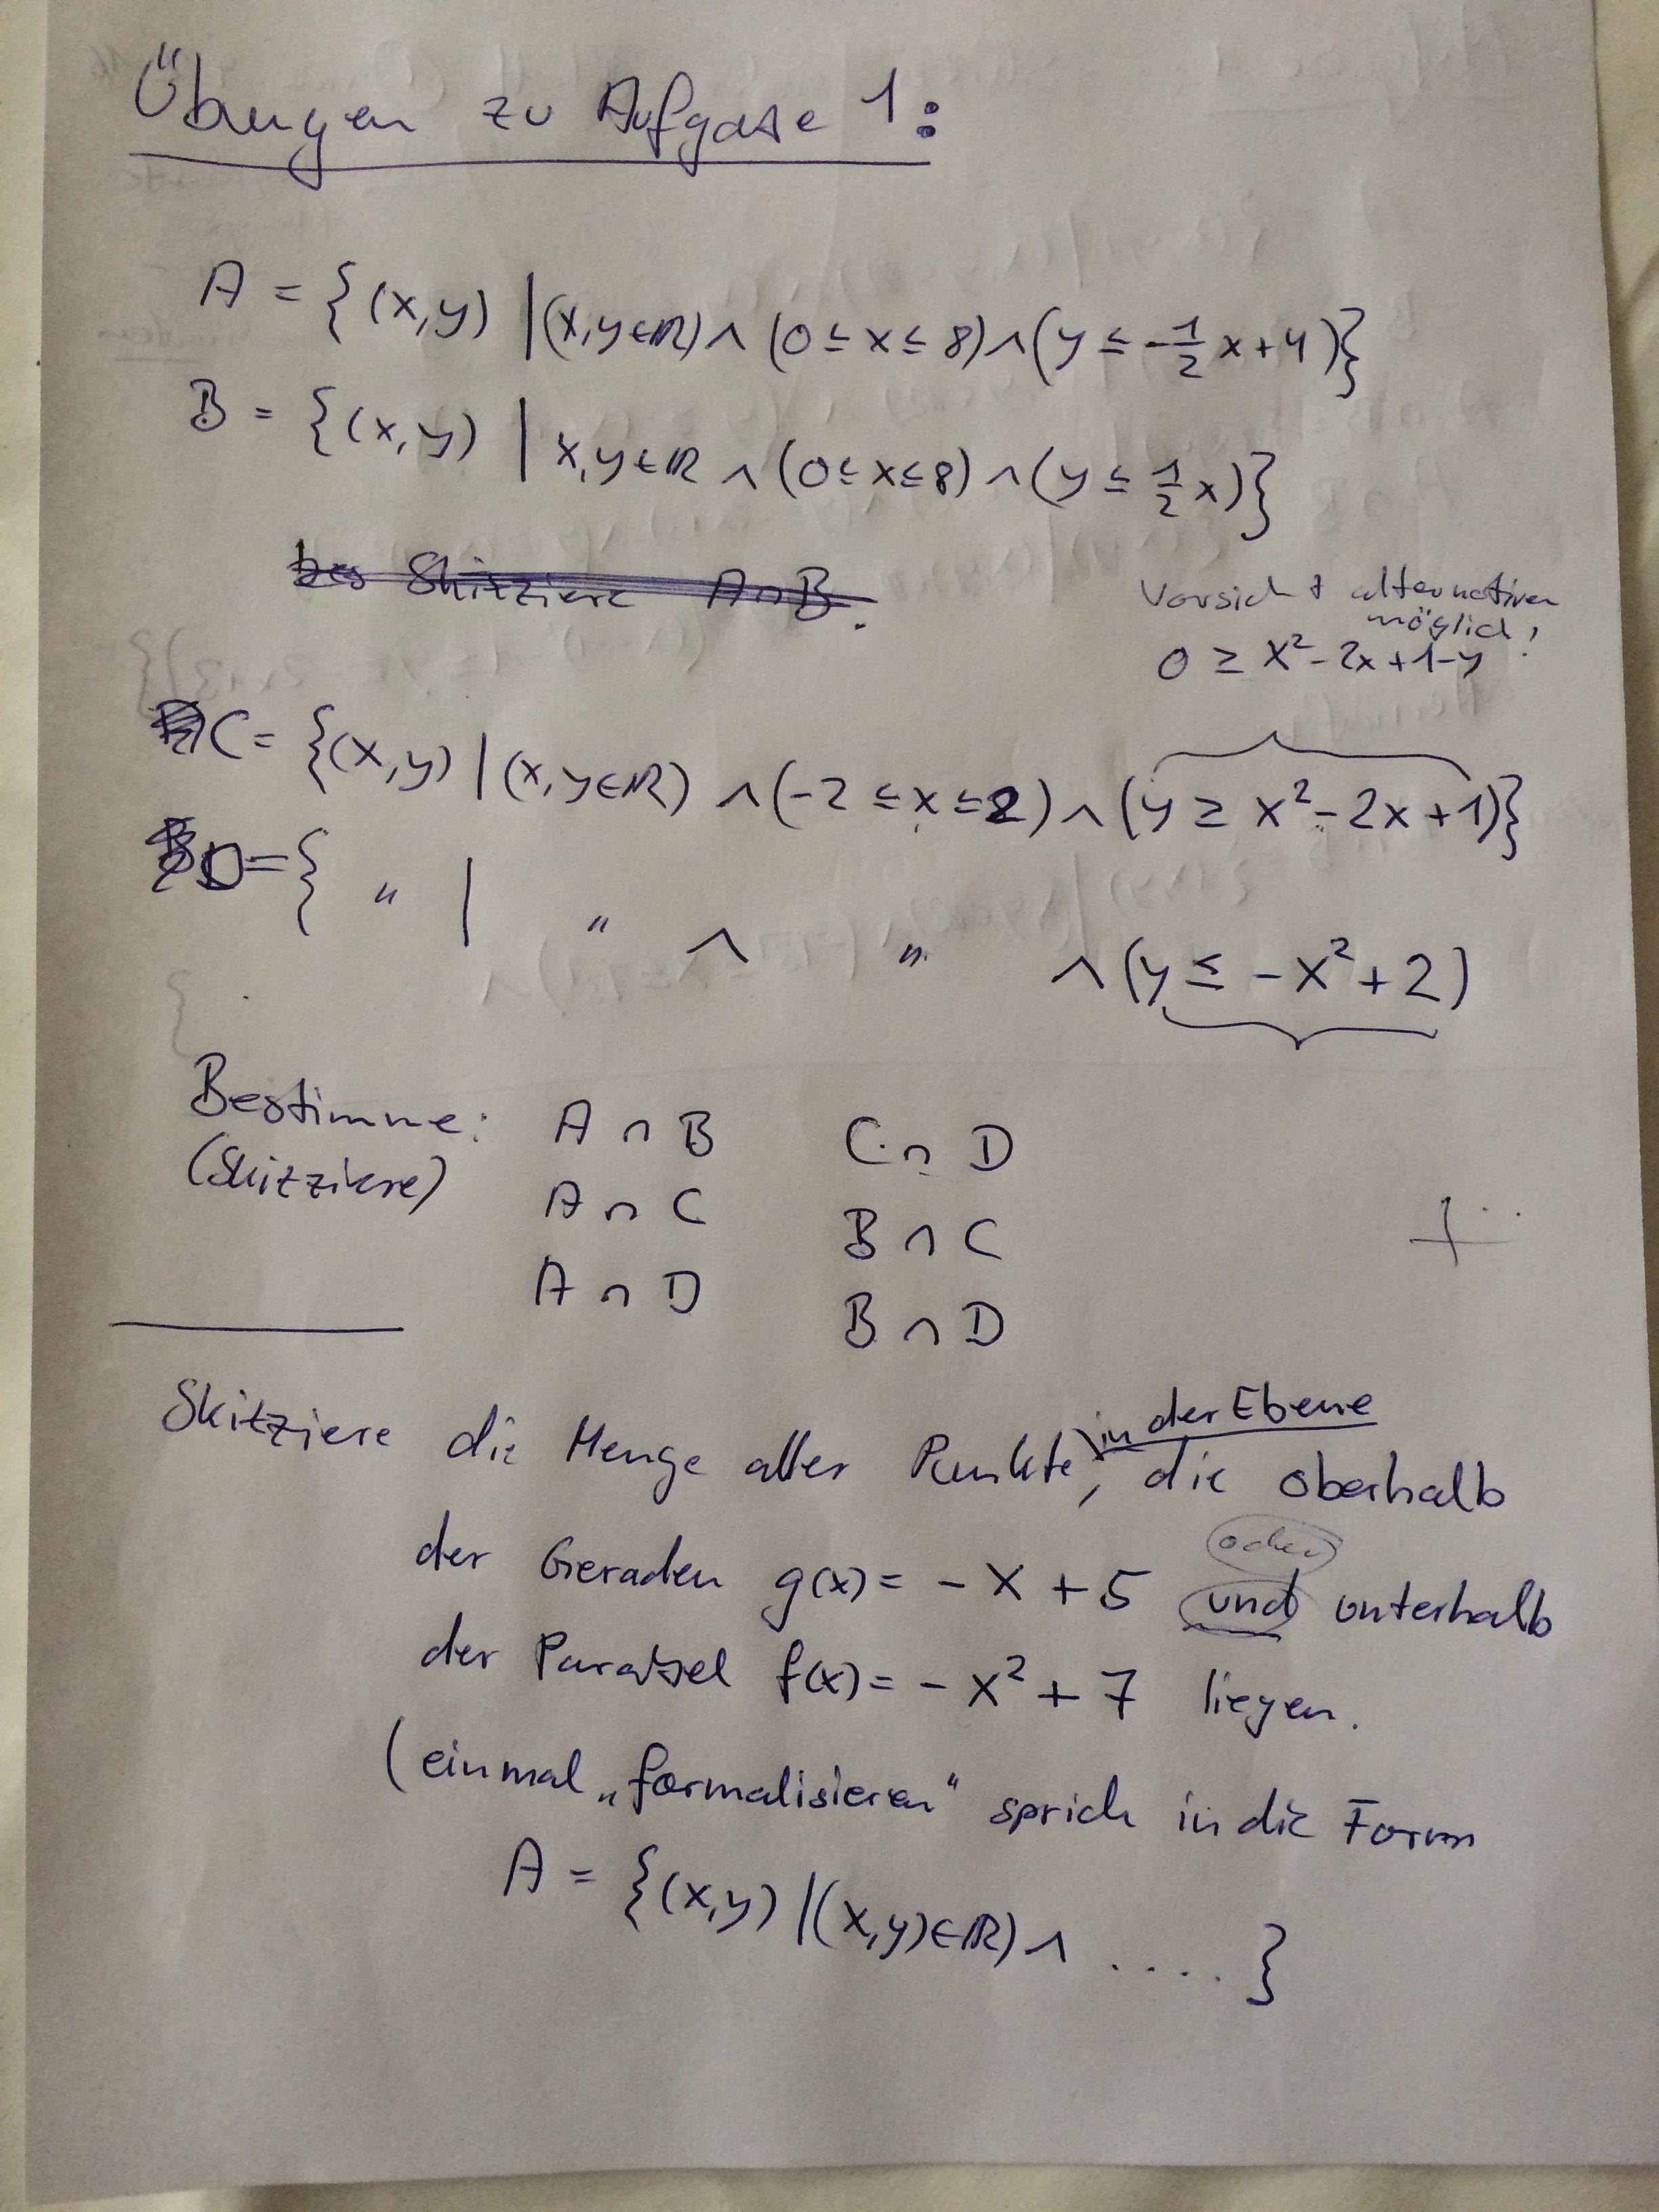 Übungen zu Aufgabe 1:
A = {(x,y) | (x,y∈ℝ) ∧ (0 ≤ x ≤ 8) ∧ (y ≤ -1/2 x + 4)}
B = {(x,y) | x,y∈ℝ ∧ (0 ≤ x ≤ 8) ∧ (y ≤ 1/2 x)}
Skitziere A∩B.
Vorsicht alternativen
möglich!
0 ≥ x² - 2x + 1 - y
C = {(x,y) | (x,y∈ℝ) ∧ (-2 ≤ x ≤ 2) ∧ (y ≥ x² - 2x + 1)}
D = { " | " ∧ " ∧ (y ≤ -x² + 2)
Bestimme: A ∩ B C ∩ D
(Skitziere) A ∩ C B ∩ C
A ∩ D B ∩ D
Skitziere die Menge aller Punkte in der Ebene, die oberhalb
oder
der Geraden g(x) = -x + 5 und unterhalb
der Parabel f(x) = -x² + 7 liegen.
(einmal „formalisieren" sprich in die Form
A = {(x,y) | (x,y)∈ℝ) ∧ ..... }